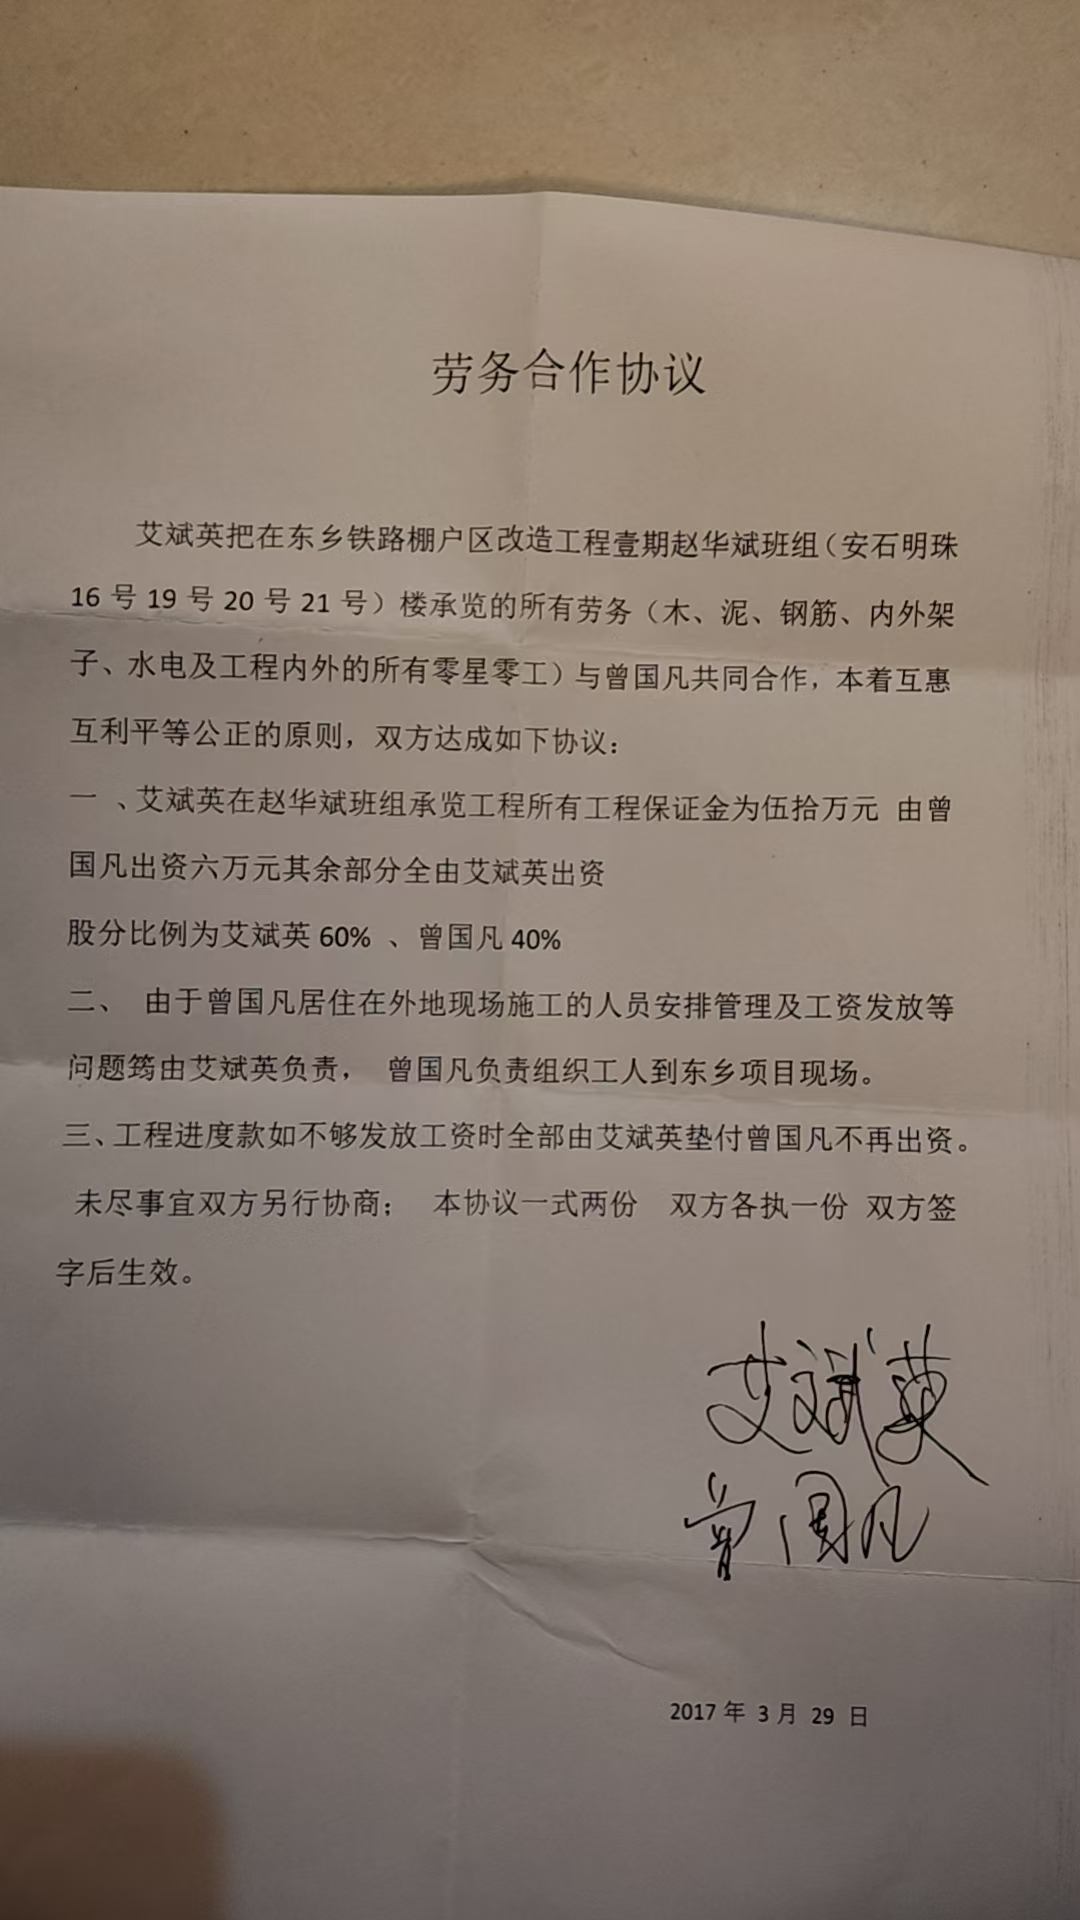 劳务合作协议
艾斌英把在东乡铁路棚户区改造工程壹期赵华斌班组（安石明珠
16 号 19 号 20 号 21 号）楼承览的所有劳务（木、泥、钢筋、内外架
子、水电及工程内外的所有零星零工）与曾国凡共同合作，本着互惠
互利平等公正的原则，双方达成如下协议：
一 、艾斌英在赵华斌班组承览工程所有工程保证金为伍拾万元 由曾
国凡出资六万元其余部分全由艾斌英出资
股分比例为艾斌英 60% 、曾国凡 40%
二、 由于曾国凡居住在外地现场施工的人员安排管理及工资发放等
问题筠由艾斌英负责， 曾国凡负责组织工人到东乡项目现场。
三、工程进度款如不够发放工资时全部由艾斌英垫付曾国凡不再出资。
未尽事宜双方另行协商； 本协议一式两份 双方各执一份 双方签
字后生效。
艾斌英
曾国凡
2017 年 3 月 29 日